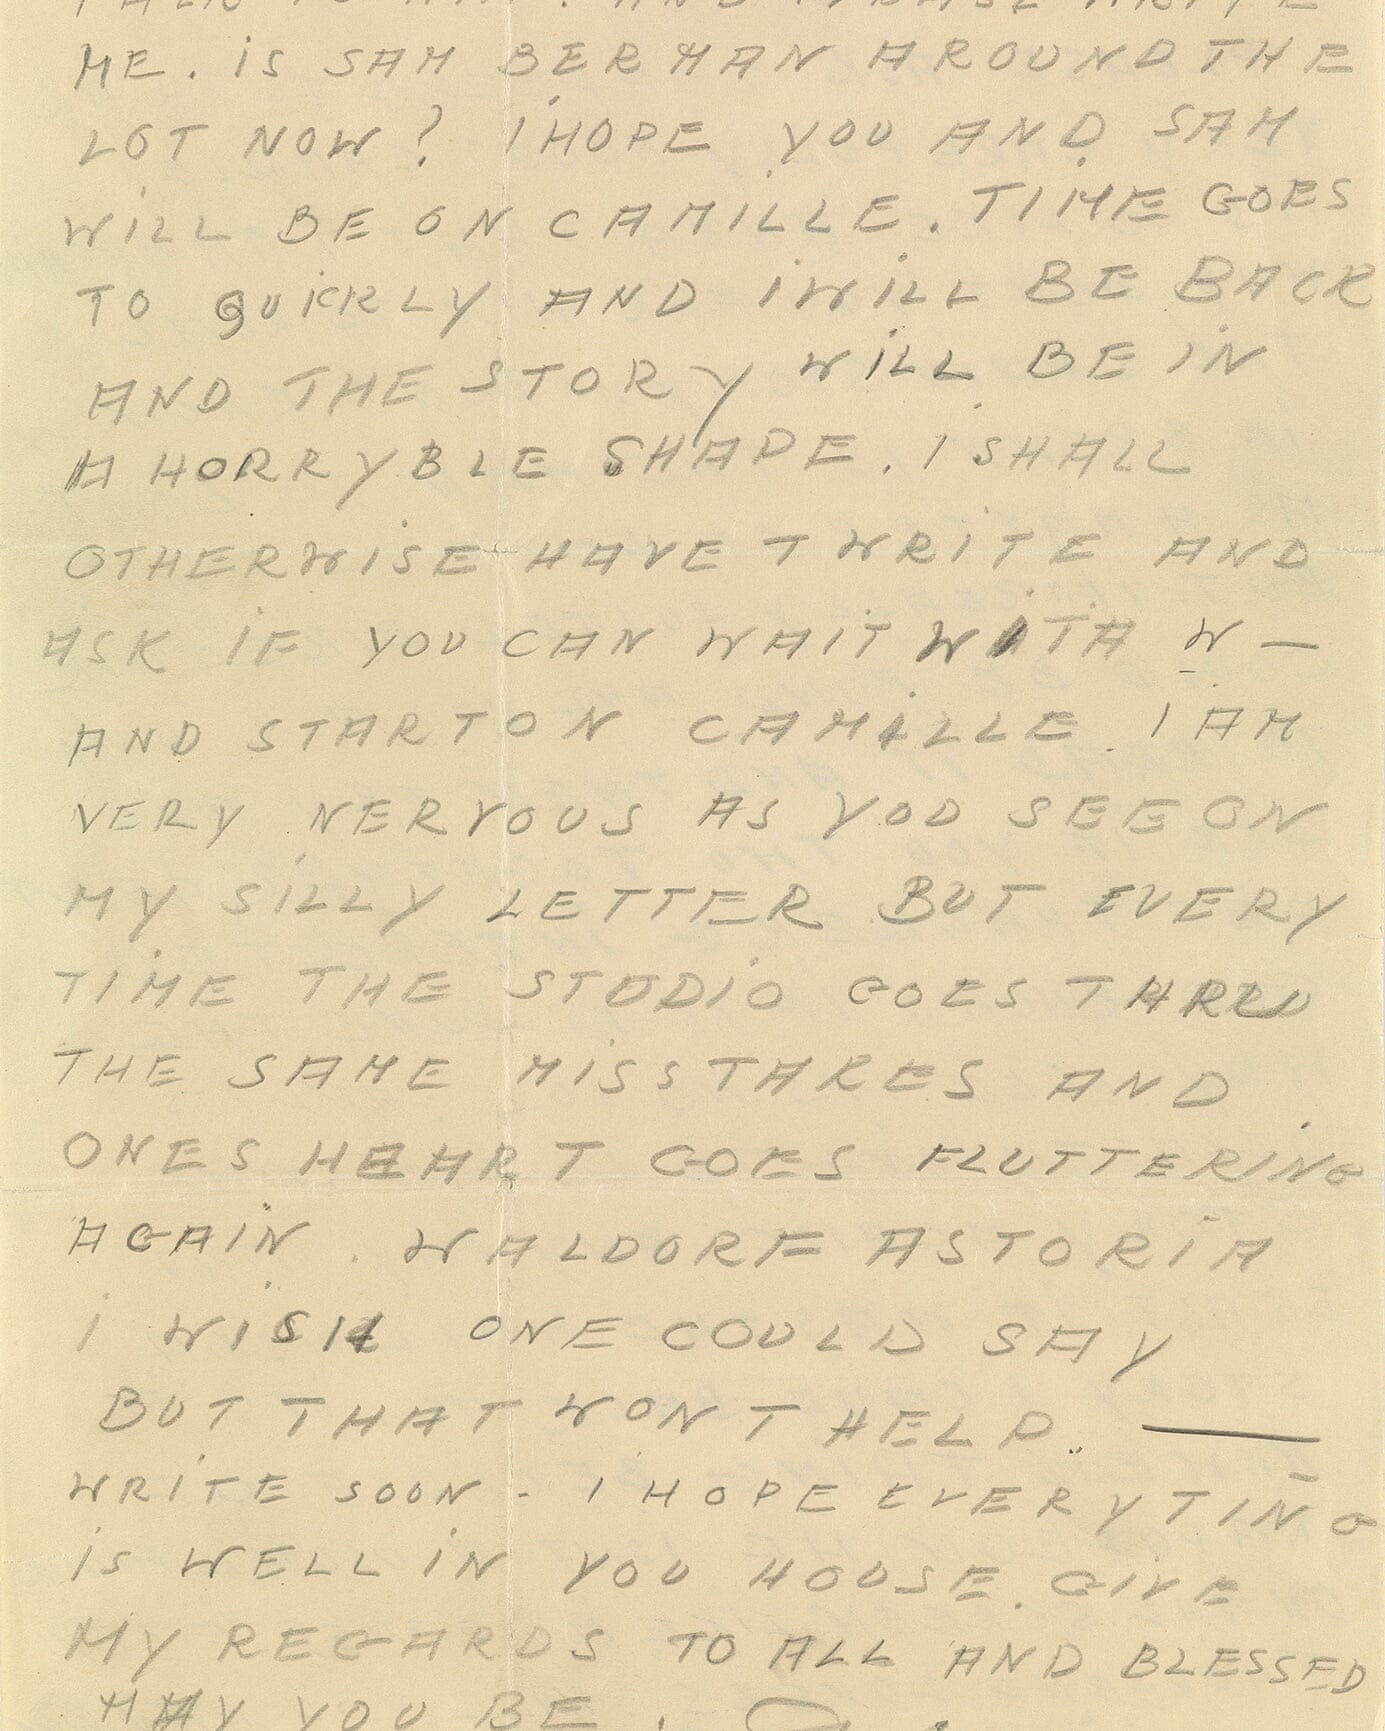 ME. IS SAM BERMAN AROUND THE
LOT NOW? I HOPE YOU AND SAM
WILL BE ON CAMILLE. TIME GOES
TO QUICKLY AND I WILL BE BACK
AND THE STORY WILL BE IN
A HORRYBLE SHAPE. I SHALL
OTHERWISE HAVE T WRITE AND
ASK IF YOU CAN WAIT WITH W —
AND START ON CAMILLE. I AM
VERY NERVOUS AS YOU SEE ON
MY SILLY LETTER BUT EVERY
TIME THE STUDIO GOES
THE SAME MISSTAKES AND
ONES HEART GOES FLUTTERING
AGAIN. WALDORF ASTORIA
I WISH ONE COULD SAY
BUT THAT WON'T HELP. —
WRITE SOON - I HOPE EVERYTING
IS WELL IN YOU HOUSE. GIVE
MY REGARDS TO ALL AND BLESSED
MAY YOU BE.